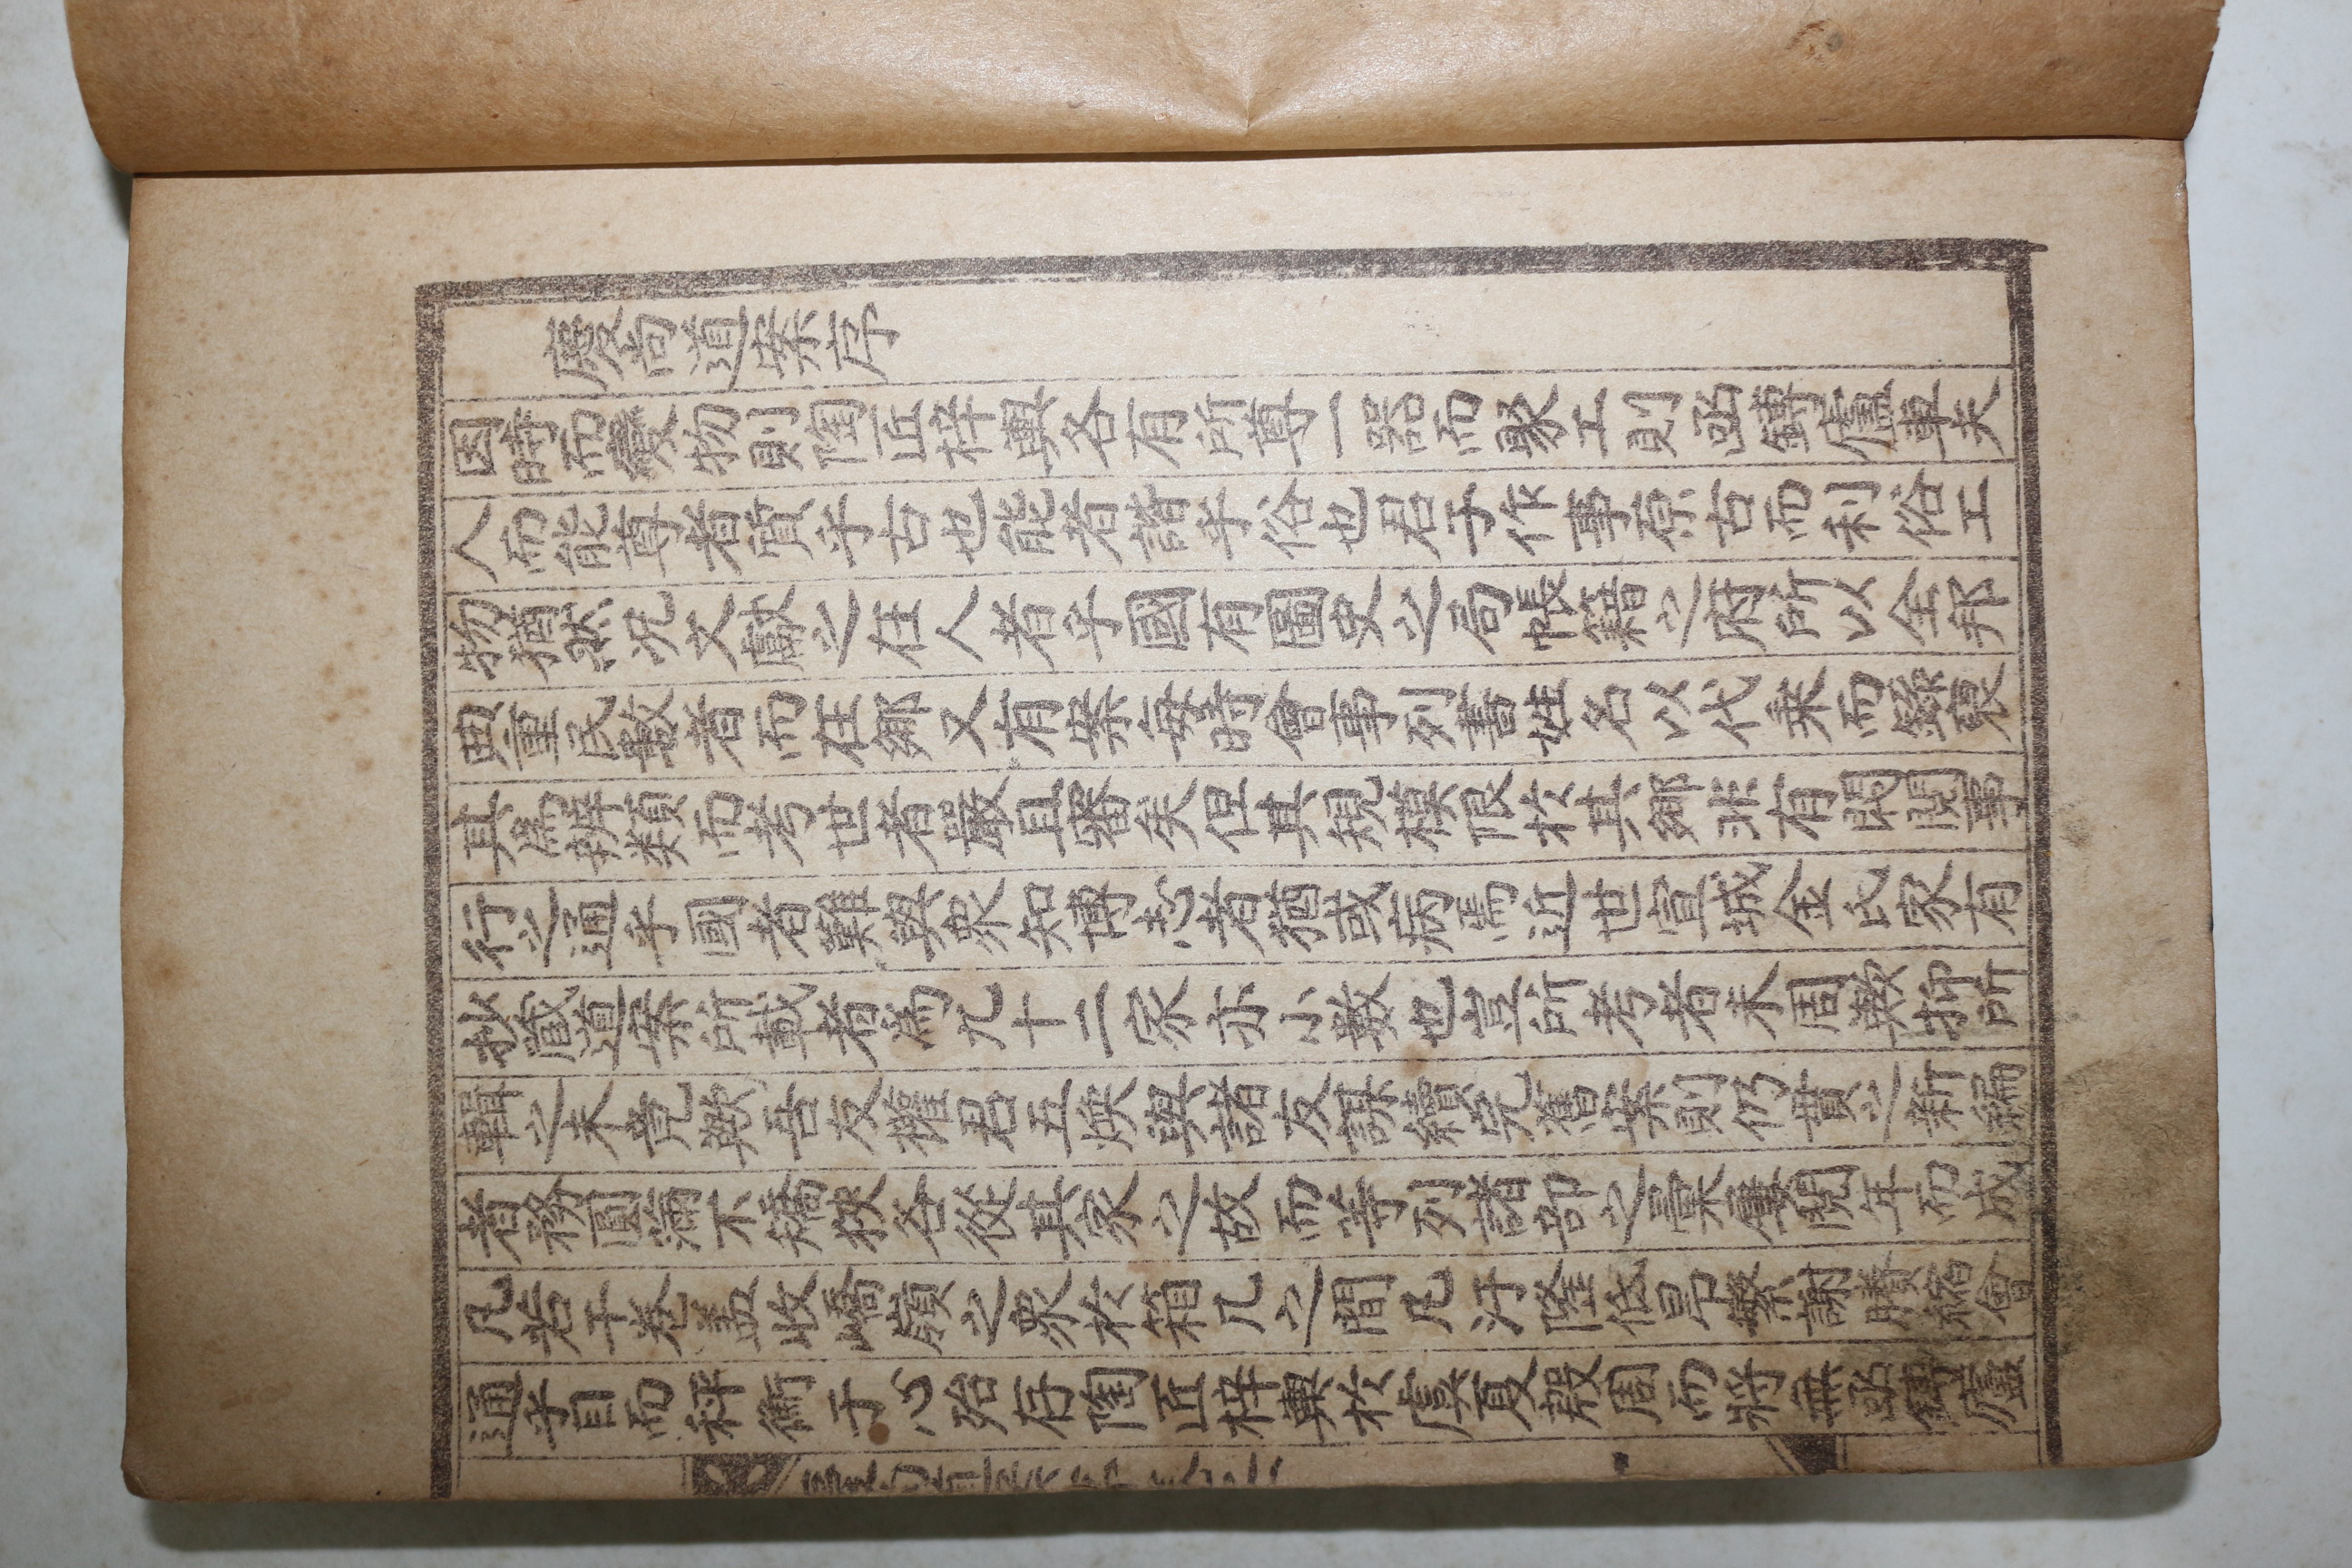 慶尚道案序
因時而變物則陶匠梓輿各有所尊一器而聚工則凾鏄廬車夫
人而能尊者質乎古也能者諧乎俗也君子作事原古而利俗工
物猶然况文獻之在人者乎國有圖史之局帳籍之府所以全邦
典重民數者而在鄉又有案每時會事列書姓名以代乘而錄裒
其爲辨類而考世者嚴且審矣但其規模限於其鄉非有閎閱事
行之通乎國者難與衆知博志者猶或病焉近世宣城金氏家有
抄蔵道案所載者爲九十二家亦小數也豈所考者未周歟抑所
輯之未竟歟吾友權君五煥與諸友謀續完舊案則仍貫之新編
者務圓蒲不矯狹各從其家之故而等列諸部之彙屢閱年而成
凡若干卷盖收嶠嶺之衆於箱几之間凡汙隆低昂繁謝賸縮會
通乎目而秤衡于心殆存陶匠梓輿於虞夏殷周而將無凾鏄廬